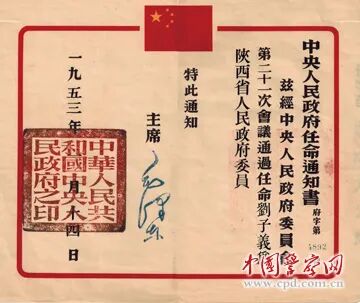 中央人民政府任命通知書
府字第
4892
茲經中央人民政府委員會
第二十一次會議通過任命劉子義爲
陝西省人民政府委員
特此通知
主席
毛澤東
一九五三年 月十四日
中華人民共
和國中央人
民政府之印
中国警察网
www.cpd.com.cn